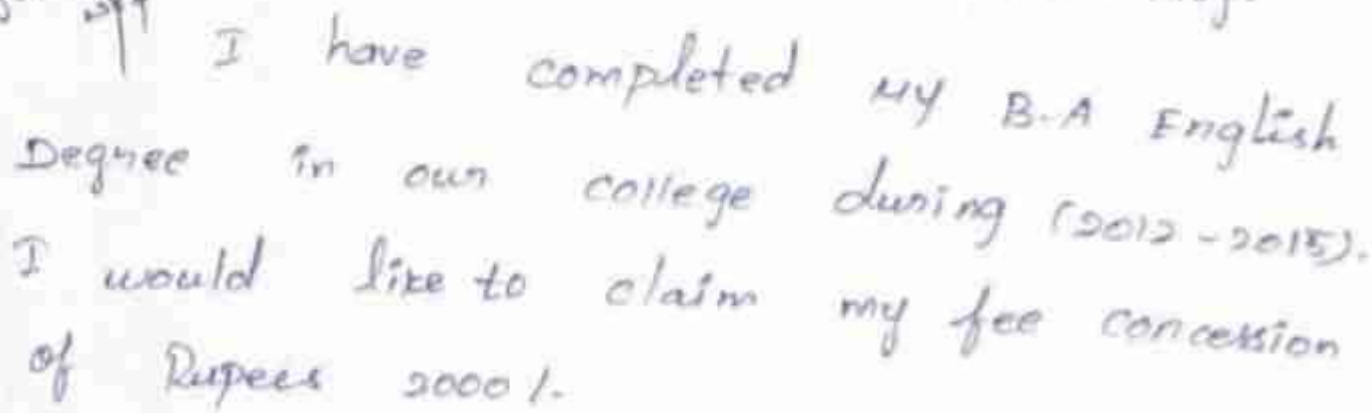 I have completed My B.A English
Degree in our college during (2012-2015).
I would like to claim my fee concession
of Rupees 2000/-